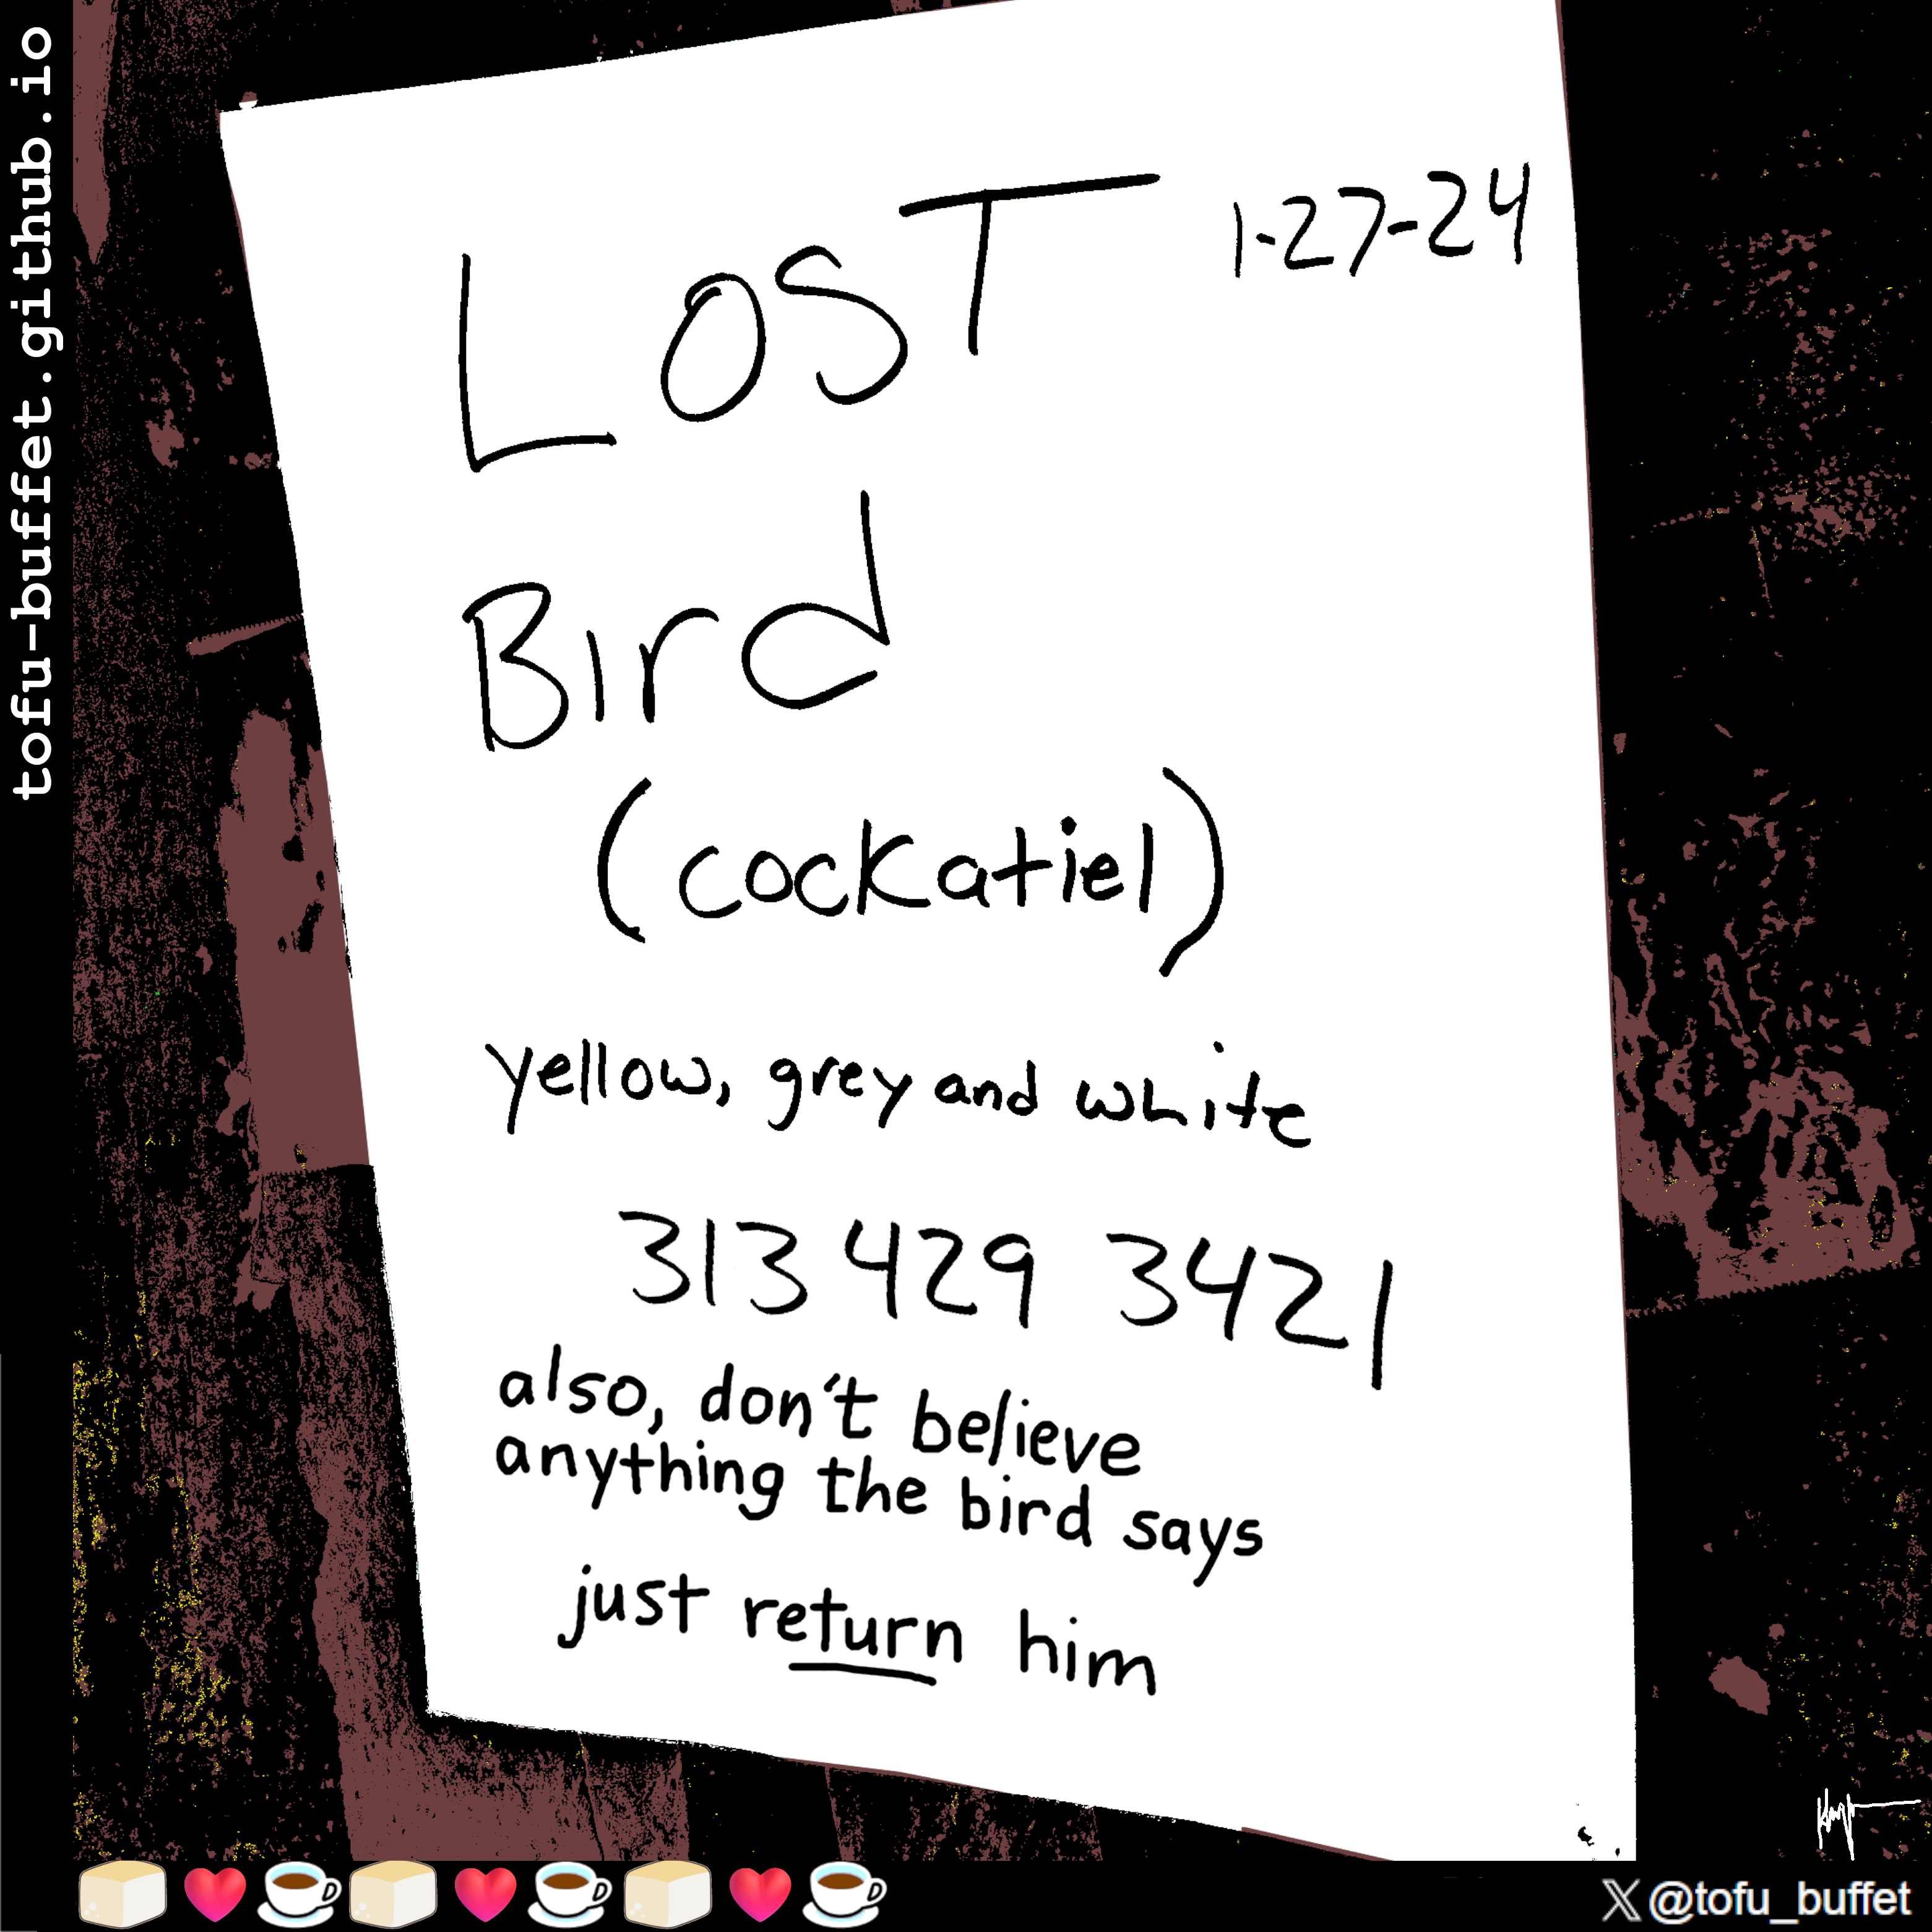 tofu-buffet.github.io
LOST 1-27-24
Bird
(cockatiel)
yellow, grey and white
313 429 3421
also, don't believe
anything the bird says
just return him
X @tofu_buffet